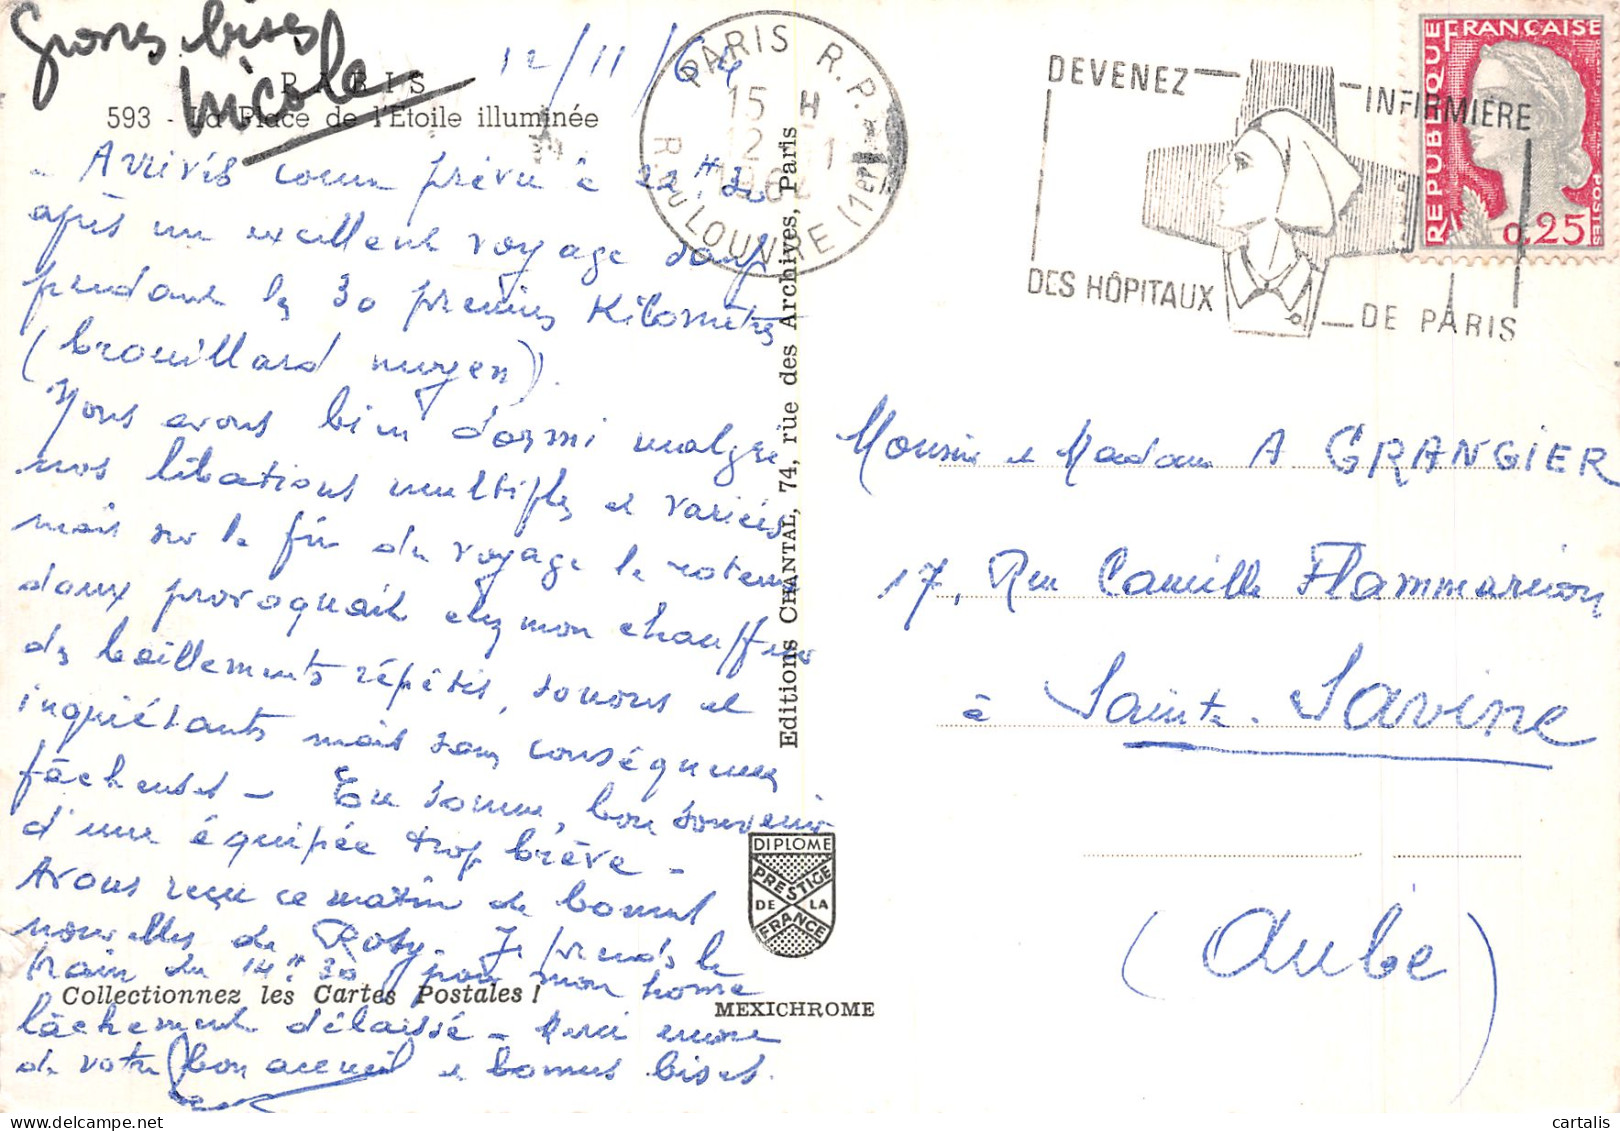 Grosses bises
Nicole
12/11/64
PARIS
593 - La Place de l'Etoile illuminée
- Arrivés comme prévu à 22H30
après un excellent voyage sauf
pendant les 30 premiers Kilomètres
(brouillard moyen).
Nous avons bien dormi malgré
nos libations multiples et variées
mais sur la fin du voyage le
doux provoquait chez mon chauffeur
des baillements répétés, sonores et
inquiétants mais sans conséquences
fâcheuses - En somme, bon souvenir
d'une équipée trop brève -
Avons reçu ce matin de bonnes
nouvelles de Roby. Je prends le
train du 14H30 pour mon home
lâchement délaissé - Merci encore
de votre bon accueil et bonnes bises.
Collectionnez les Cartes Postales !
Editions CHANTAL, 74, rue des Archives, Paris
DIPLOME
PRESTIGE
DE LA
FRANCE
MEXICHROME
PARIS R.P.
15 H
12 - 11
1964
R. DU LOUVRE (1er)
DEVENEZ INFIRMIÈRE
DES HÔPITAUX DE PARIS
REPUBLIQUE FRANÇAISE
POSTES
0,25
Monsieur et Madame A GRANGIER
17, Rue Camille Flammarion
à Sainte-Savine
(Aube)
cartalis
© www.delcampe.net